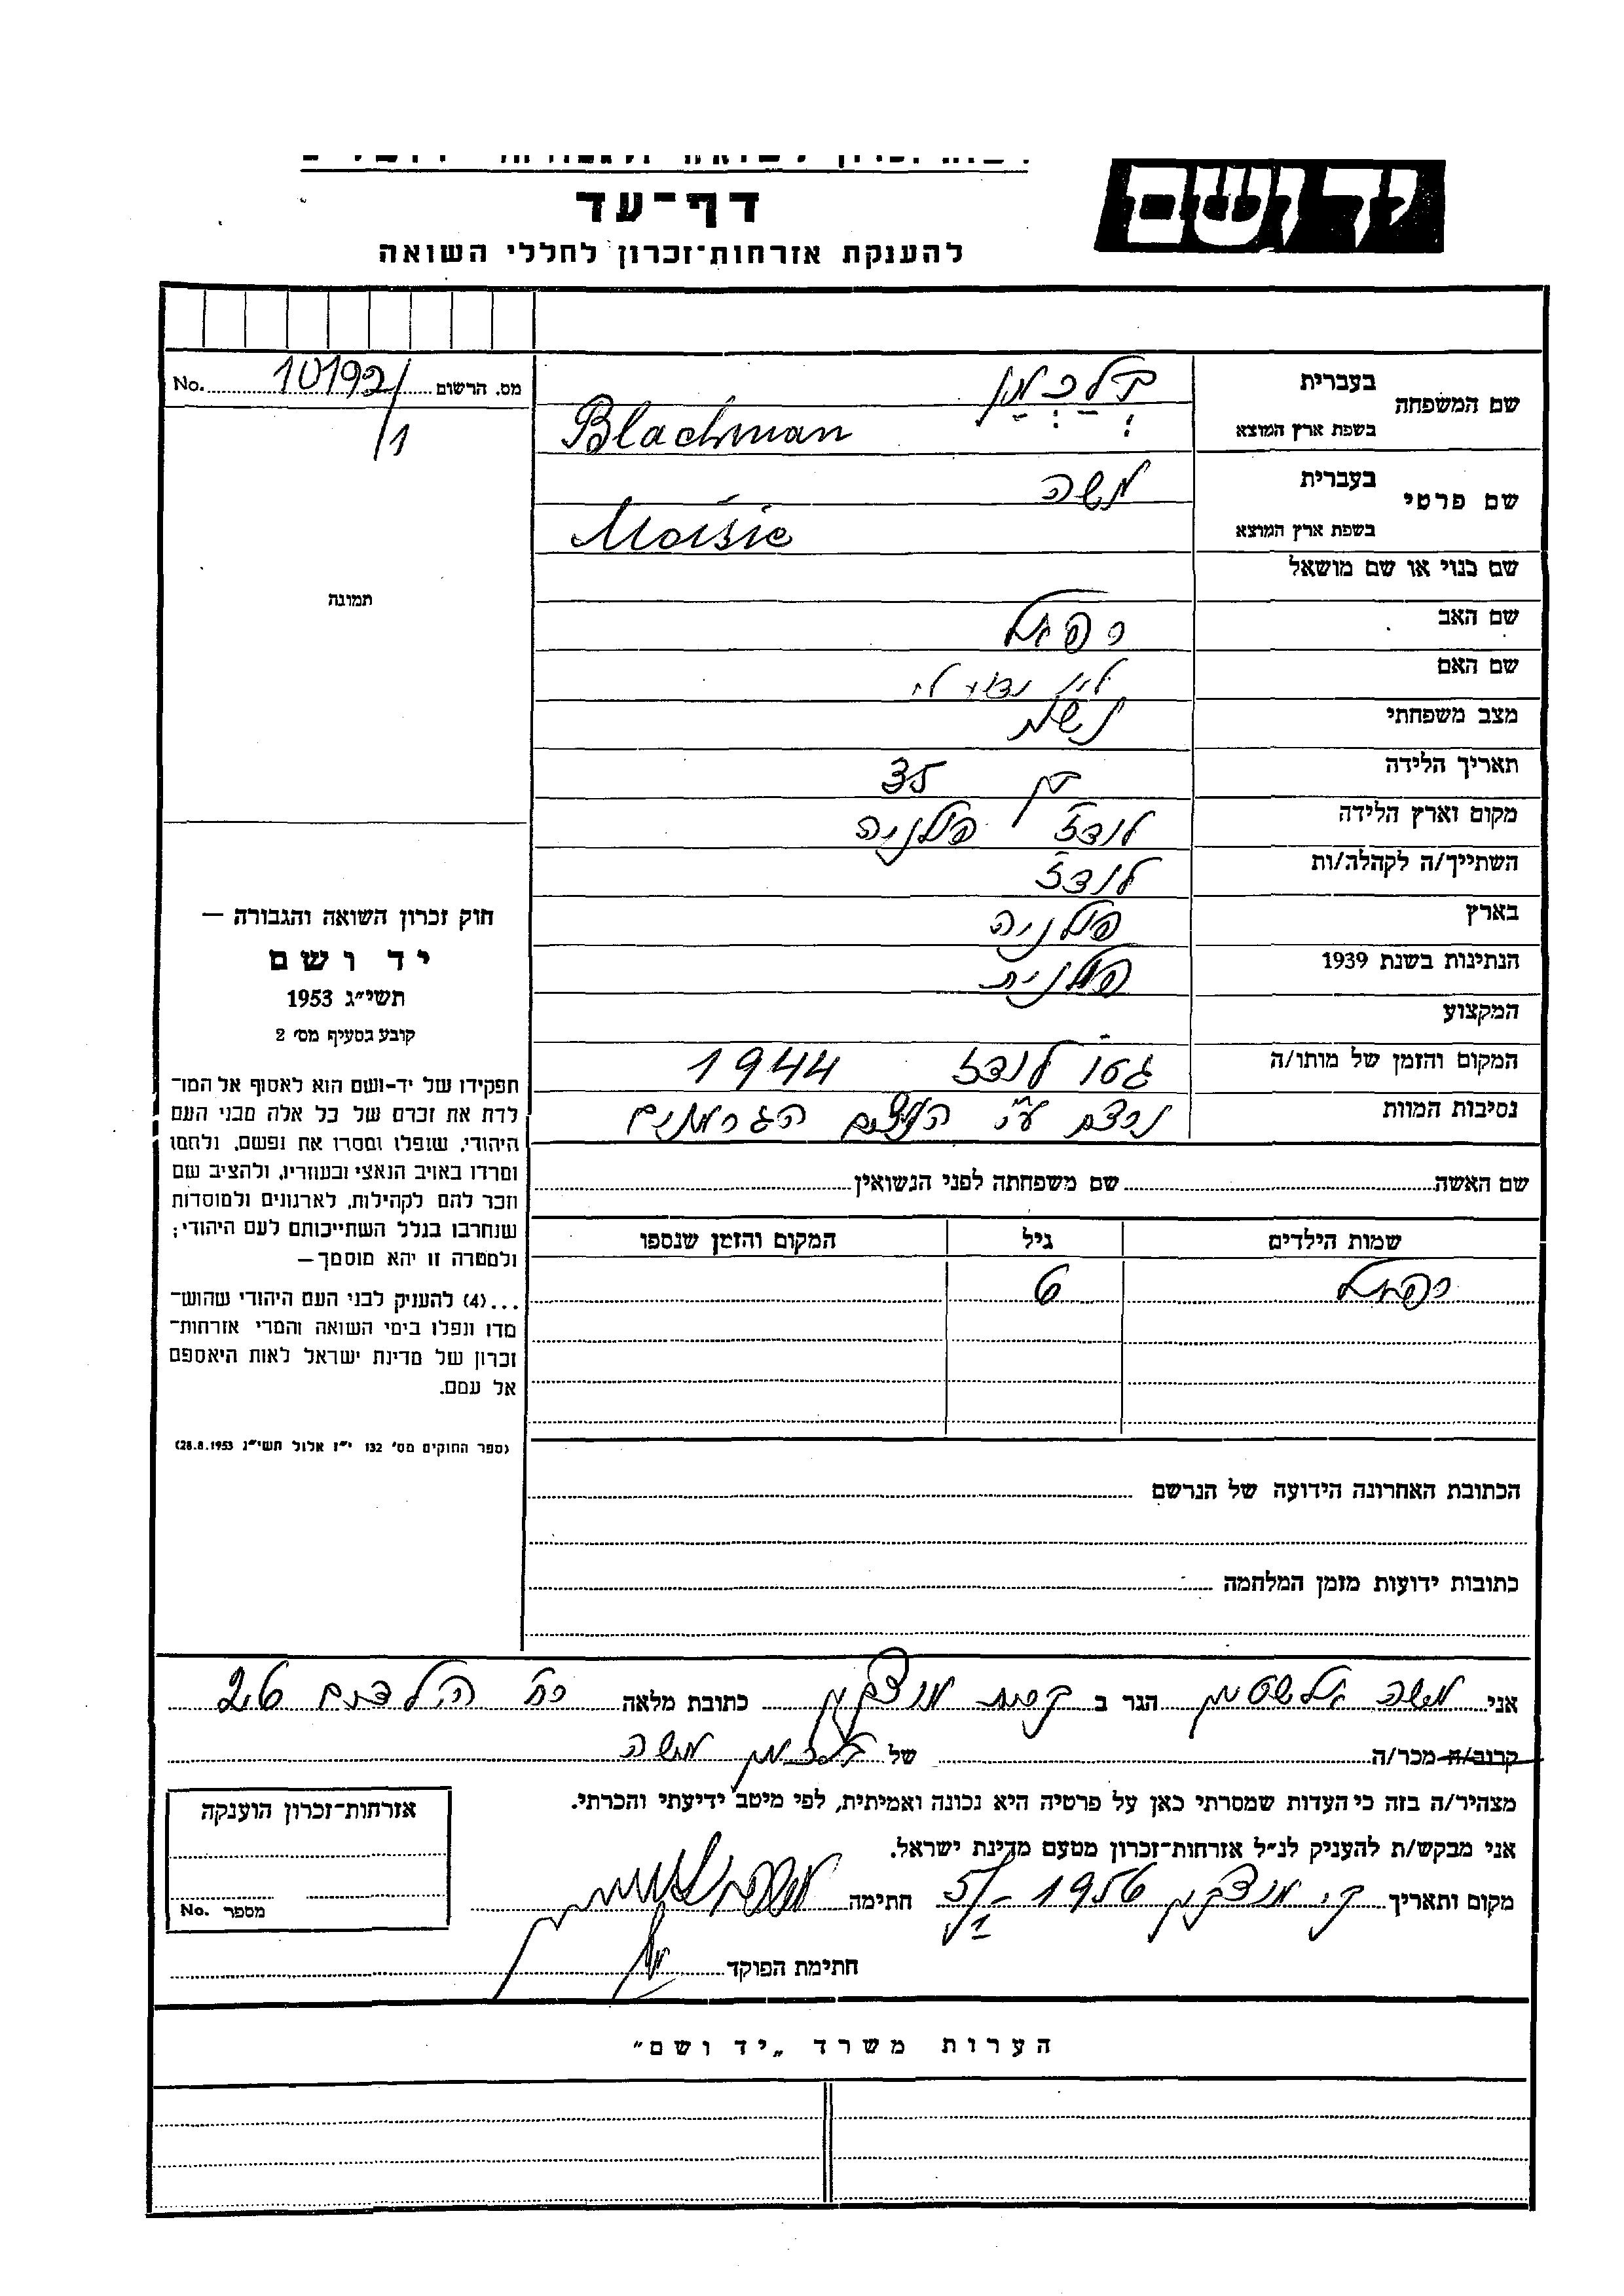 יד ושם
דף־עד
להענקת אזרחות־זכרון לחללי השואה
מס. הרשום 10192/1 No.
שם המשפחה
בעברית בלכמן
בשפת ארץ המוצא Blachman
שם פרטי
בעברית משה
בשפת ארץ המוצא Moisie
שם כנוי או שם מושאל
שם האב רפאל
שם האם לא
מצב משפחתי נשוי
תאריך הלידה בן 35
מקום וארץ הלידה לודז פולניה
השתייך/ה לקהלה/ות לודז
בארץ פולניה
הנתינות בשנת 1939 פולנית
המקצוע
המקום והזמן של מותו/ה גטו לודז 1944
נסיבות המוות נרצח ע״י הנאצים הגרמנים
שם האשה שם משפחתה לפני הנשואין
שמות הילדים גיל המקום והזמן שנספו
רפאל 6
הכתובת האחרונה הידועה של הנרשם
כתובות ידועות מזמן המלחמה
תמונה
חוק זכרון השואה והגבורה —
יד ושם
תשי״ג 1953
קובע בסעיף מס׳ 2
תפקידו של יד-ושם הוא לאסוף אל המו־
לדת את זכרם של כל אלה מבני העם
היהודי, שנפלו ומסרו את נפשם, נלחמו
ומרדו באויב הנאצי ובעוזריו, ולהציב שם
וזכר להם לקהילות, לארגונים ולמוסדות
שנחרבו בגלל השתייכותם לעם היהודי;
ולמטרה זו יהא מוסמך—
...(4) להעניק לבני העם היהודי שהוש־
מדו ונפלו בימי השואה והמרי אזרחות־
זכרון של מדינת ישראל לאות היאספם
אל עמם.
(ספר החוקים מס׳ 132 י״ז אלול תשי״ג 28.8.1953)
אני משה הגר ב קרית מוצקין כתובת מלאה 26
קרוב/ה מכר/ה של בלכמן משה
מצהיר/ה בזה כי העדות שמסרתי כאן על פרטיה היא נכונה ואמיתית, לפי מיטב ידיעתי והכרתי.
אני מבקש/ת להעניק לנ״ל אזרחות־זכרון מטעם מדינת ישראל.
מקום ותאריך ק. מוצקין 1956 חתימה
חתימת הפוקד
אזרחות־זכרון הוענקה
מספר No.
הערות משרד „יד ושם״